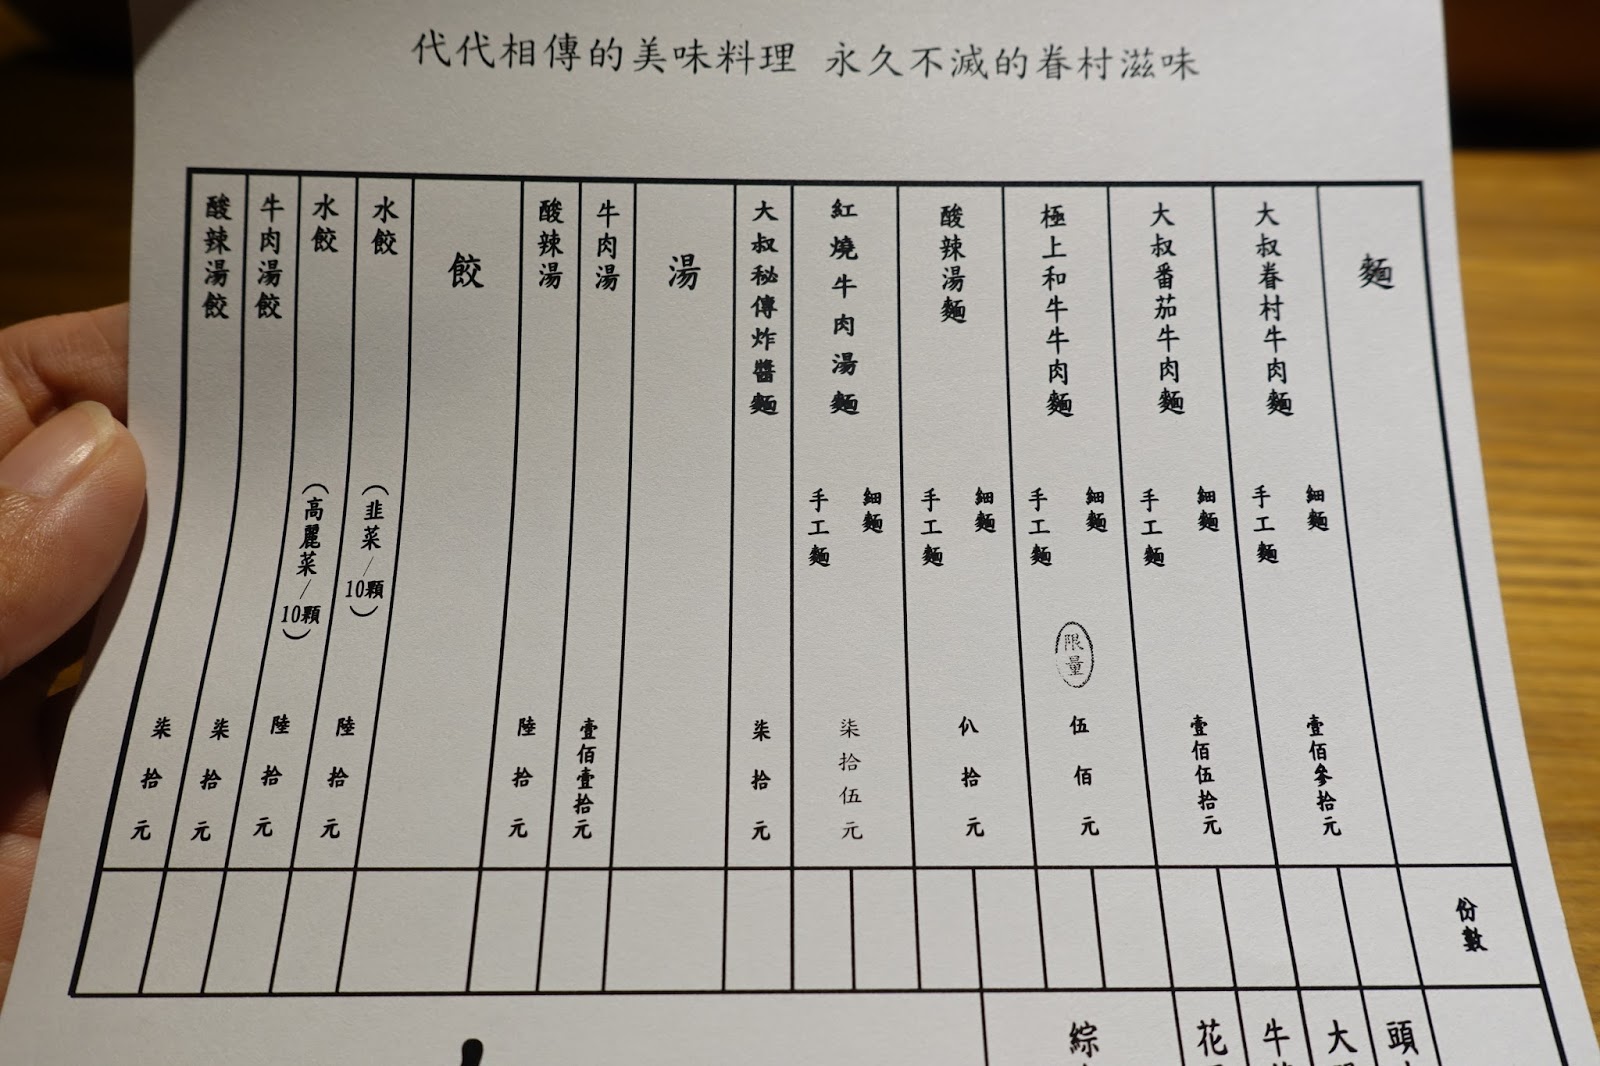 代代相傳的美味料理 永久不滅的眷村滋味
麵
份數
大叔眷村牛肉麵
細麵
手工麵
壹佰參拾元
大叔番茄牛肉麵
細麵
手工麵
壹佰伍拾元
極上和牛牛肉麵
細麵
手工麵
限量
伍佰元
酸辣湯麵
細麵
手工麵
仈拾元
紅燒牛肉湯麵
細麵
手工麵
柒拾伍元
大叔秘傳炸醬麵
柒拾元
湯
牛肉湯
壹佰壹拾元
酸辣湯
陸拾元
餃
水餃
(韭菜/10顆)
陸拾元
水餃
(高麗菜/10顆)
陸拾元
牛肉湯餃
柒拾元
酸辣湯餃
柒拾元
頭
大
牛
花
綜